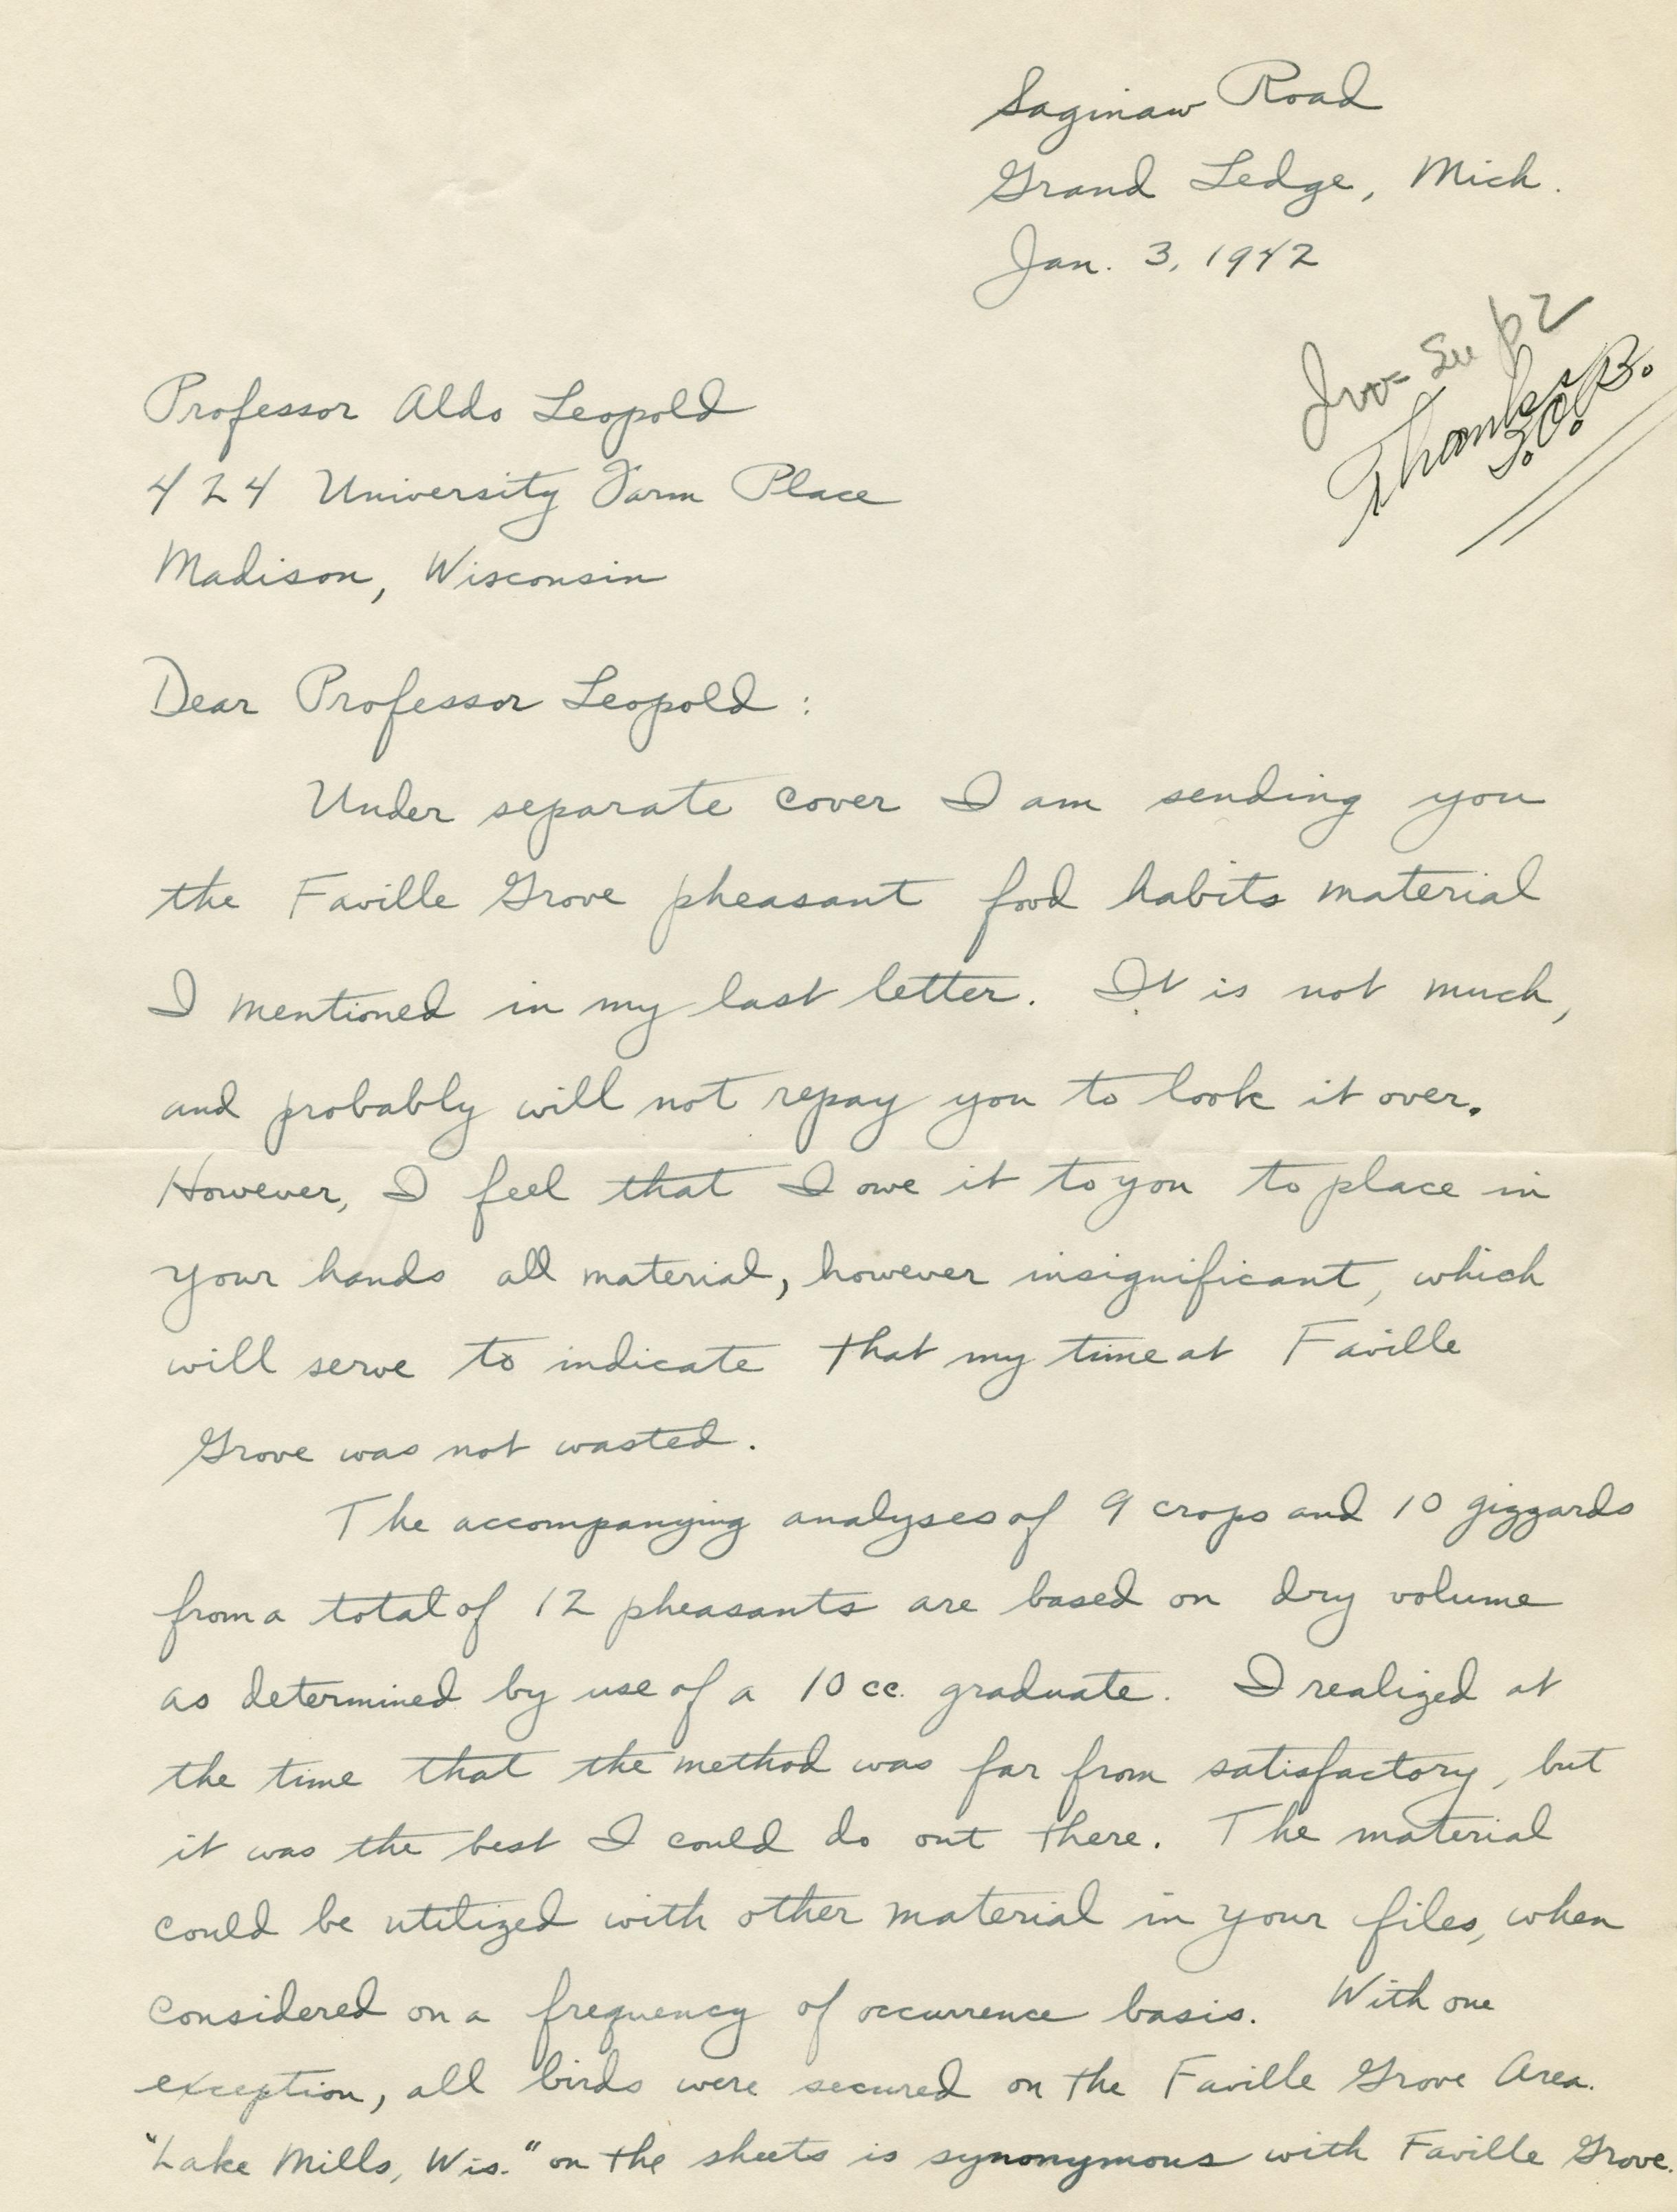 Saginaw Road
Grand Ledge, Mich.
Jan. 3, 1942
See p 2
Thanks
Professor Aldo Leopold
424 University Farm Place
Madison, Wisconsin
Dear Professor Leopold :
Under separate cover I am sending you
the Faville Grove pheasant food habits material
I mentioned in my last letter. It is not much,
and probably will not repay you to look it over.
However, I feel that I owe it to you to place in
your hands all material, however insignificant, which
will serve to indicate that my time at Faville
Grove was not wasted.
The accompanying analyses of 9 crops and 10 gizzards
from a total of 12 pheasants are based on dry volume
as determined by use of a 10 cc. graduate. I realized at
the time that the method was far from satisfactory, but
it was the best I could do out there. The material
could be utilized with other material in your files, when
considered on a frequency of occurrence basis. With one
exception, all birds were secured on the Faville Grove Area.
"Lake Mills, Wis." on the sheets is synonymous with Faville Grove.